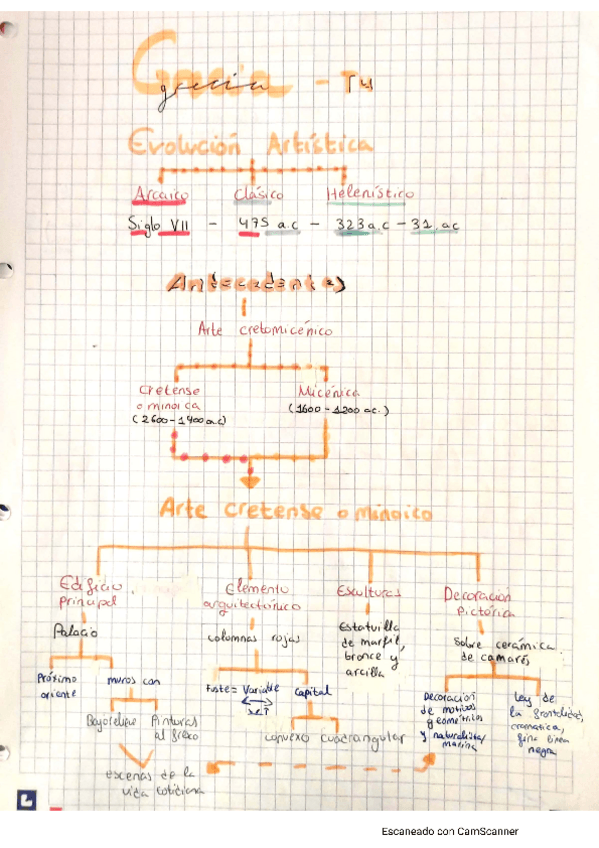 Grecia - T4
grecia
Evolución Artística
Arcaico Clásico Helenístico
Siglo VII - 475 a.c - 323 a.c - 31 a.c
Antecedentes
Arte cretomicénico
Cretense
o minoica
(2600 - 1400 a.c)
Micénica
(1600 - 1200 ac.)
Arte cretense o minoico
Edificio
principal
Palacio
Próximo
oriente
muros con
Bajorelieve
Pinturas
al fresco
escenas de la
vida cotidiana
Elemento
arquitectónico
columnas rojas
Fuste = Variable
Capital
convexo cuadrangular
Esculturas
Estatuilla
de marfil,
bronce y
arcilla
Decoración
Pictórica
Sobre cerámica
de camarés
Decoración
de motivos
geométricos
y naturalista/
marina
Ley de
la frontalidad,
cromática,
fina línea
negra
L
Escaneado con CamScanner